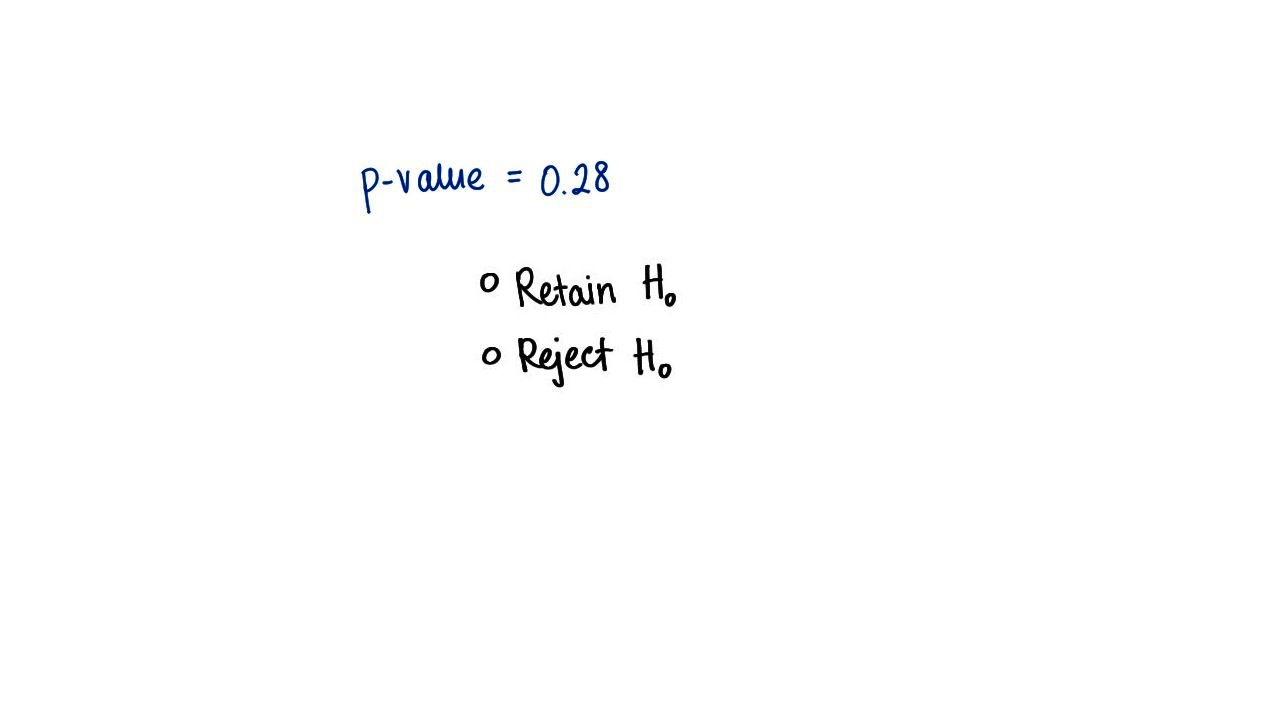 p-value = 0.28
○ Retain H₀
○ Reject H₀